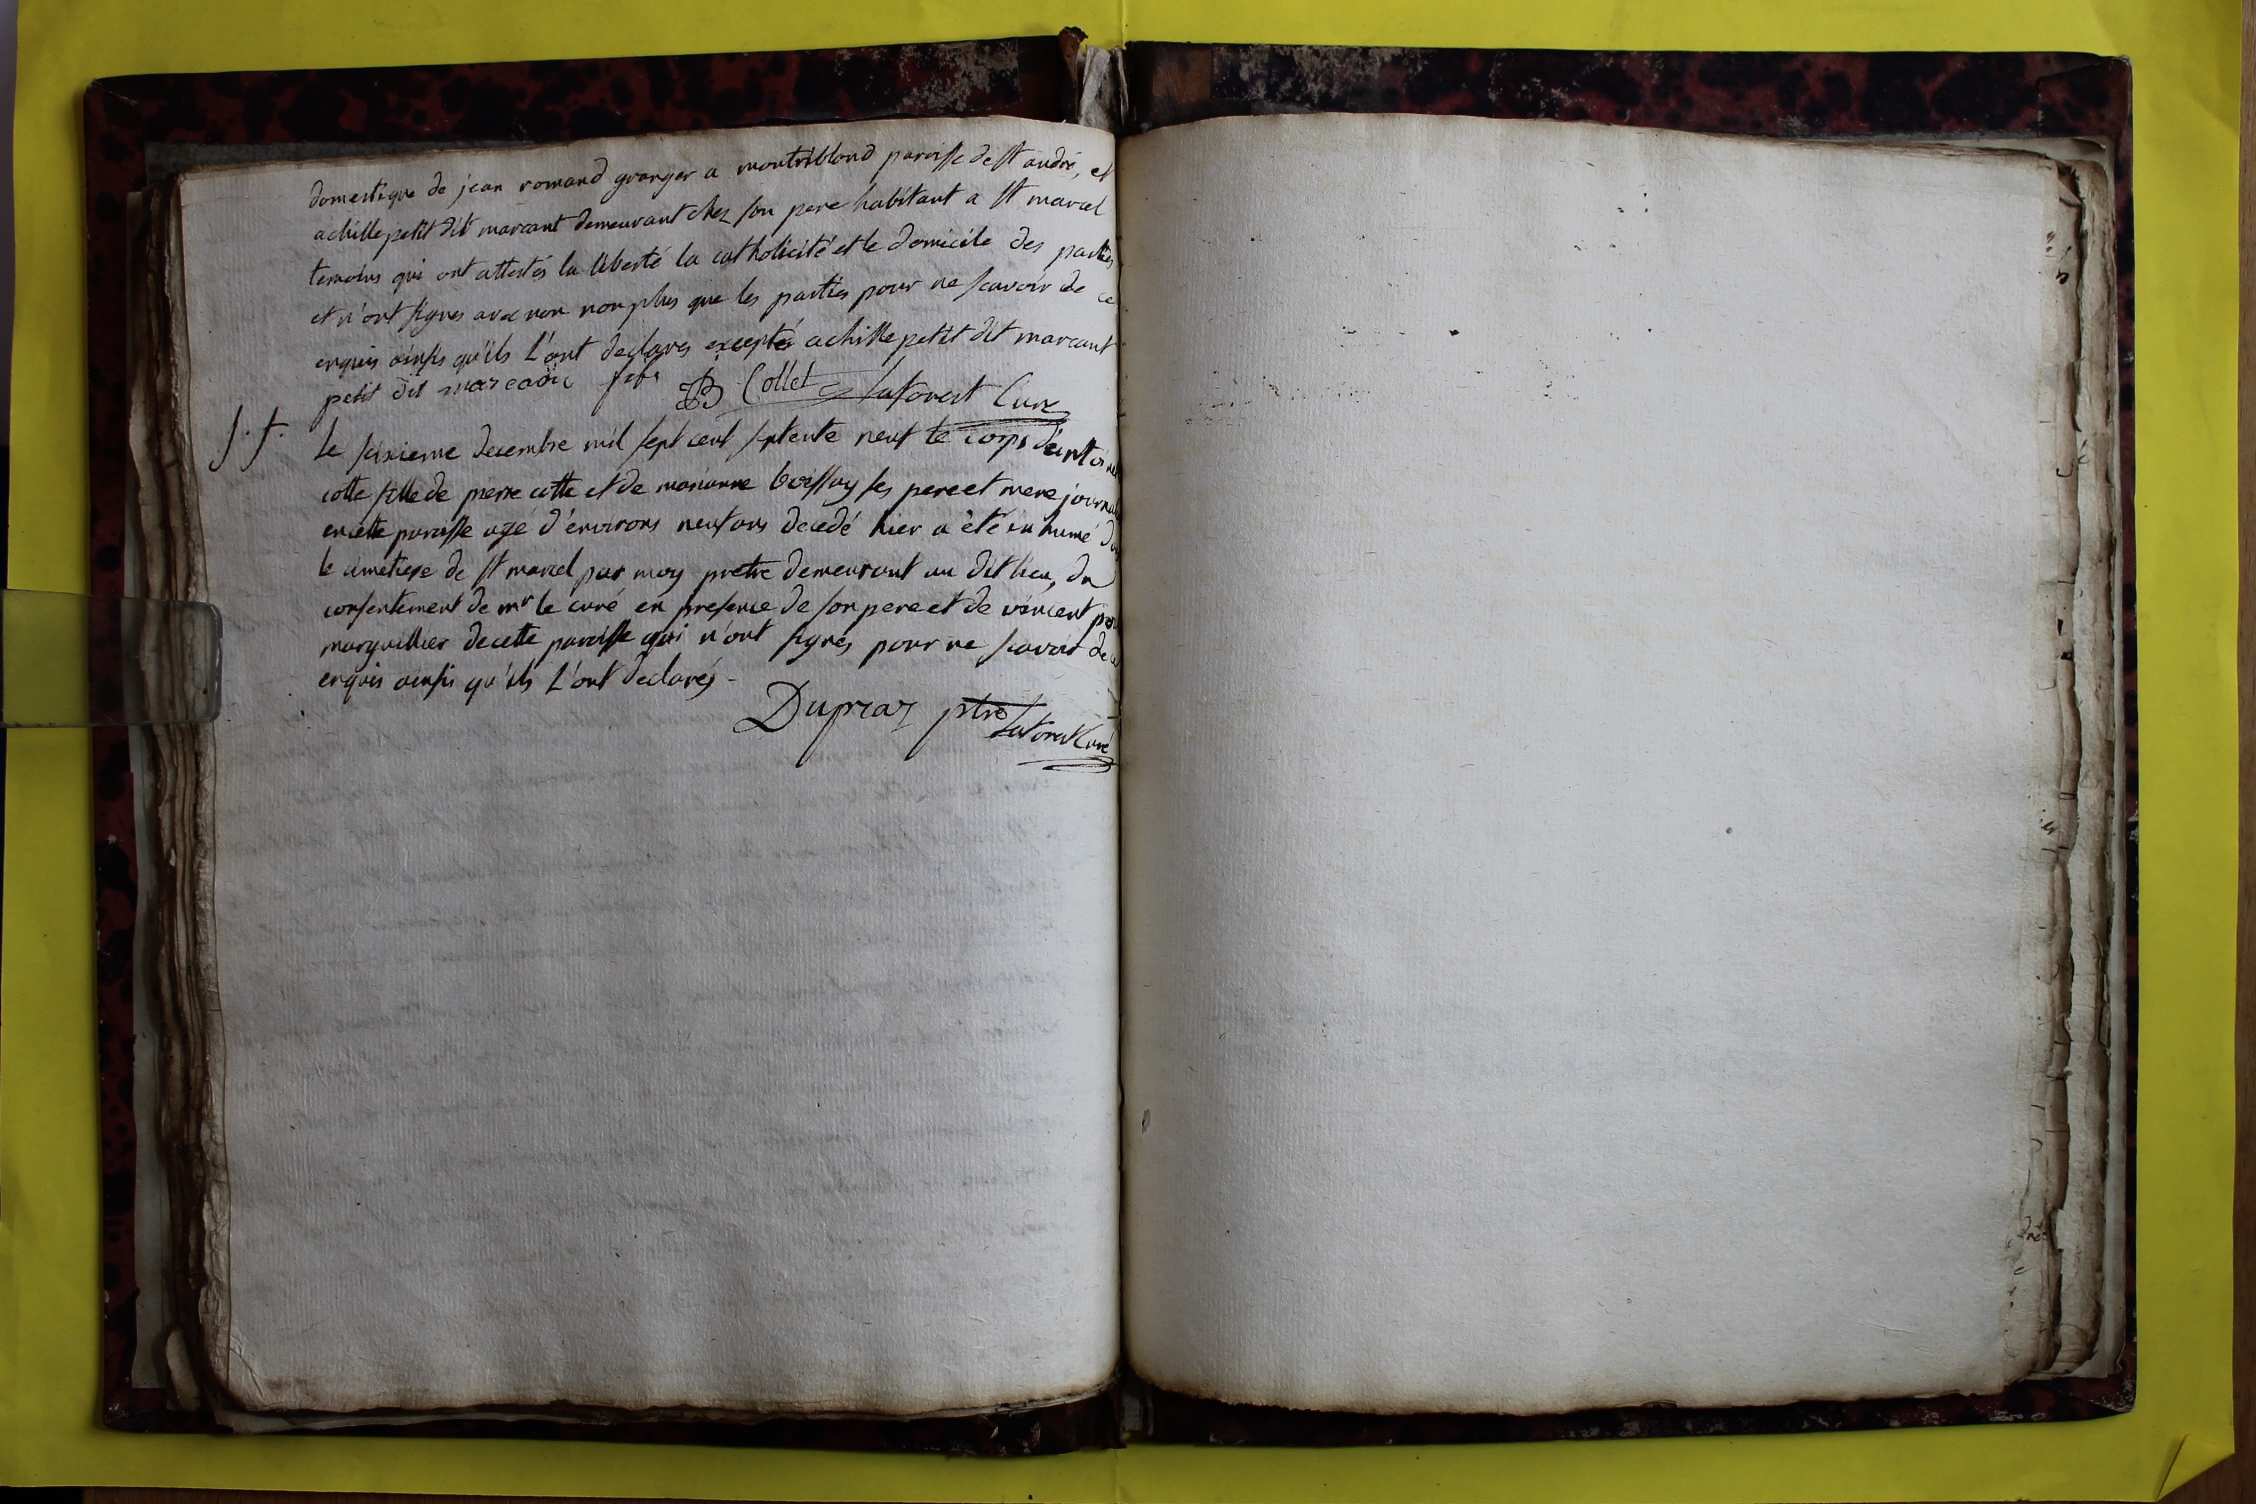 domestique de jean romand granger a montriblond paroisse de st andré, et
achille petit dit marcant demeurant chez son pere habitant a st marcel
temoins qui ont attestés la liberté la catholicité et le domicile des parties
et n'ont signes avec non plus que les parties pour ne scavoir de ce
enquis ainsis qu'ils L'ont declares exceptés achille petit dit marcant
petit dit Collet Laforest Curé
f. f.
Le sixieme decembre mil sept cent septente neuf le corps
cotte fille de pierre cotte et de marianne boissay ses pere et mere
en cette paroisse agé d'environs neuf ans decedé hier a été inhumé
le cimetiere de st marcel par moy pretre demeurant au dit lieu, du
consentement de mr le curé en presence de son pere et de vincent
marguillier de cette paroisse qui n'ont signés pour ne scavoir de ce
enquis ainsis qu'ils L'ont declarés -
Dupraz ptre
Laforest Curé